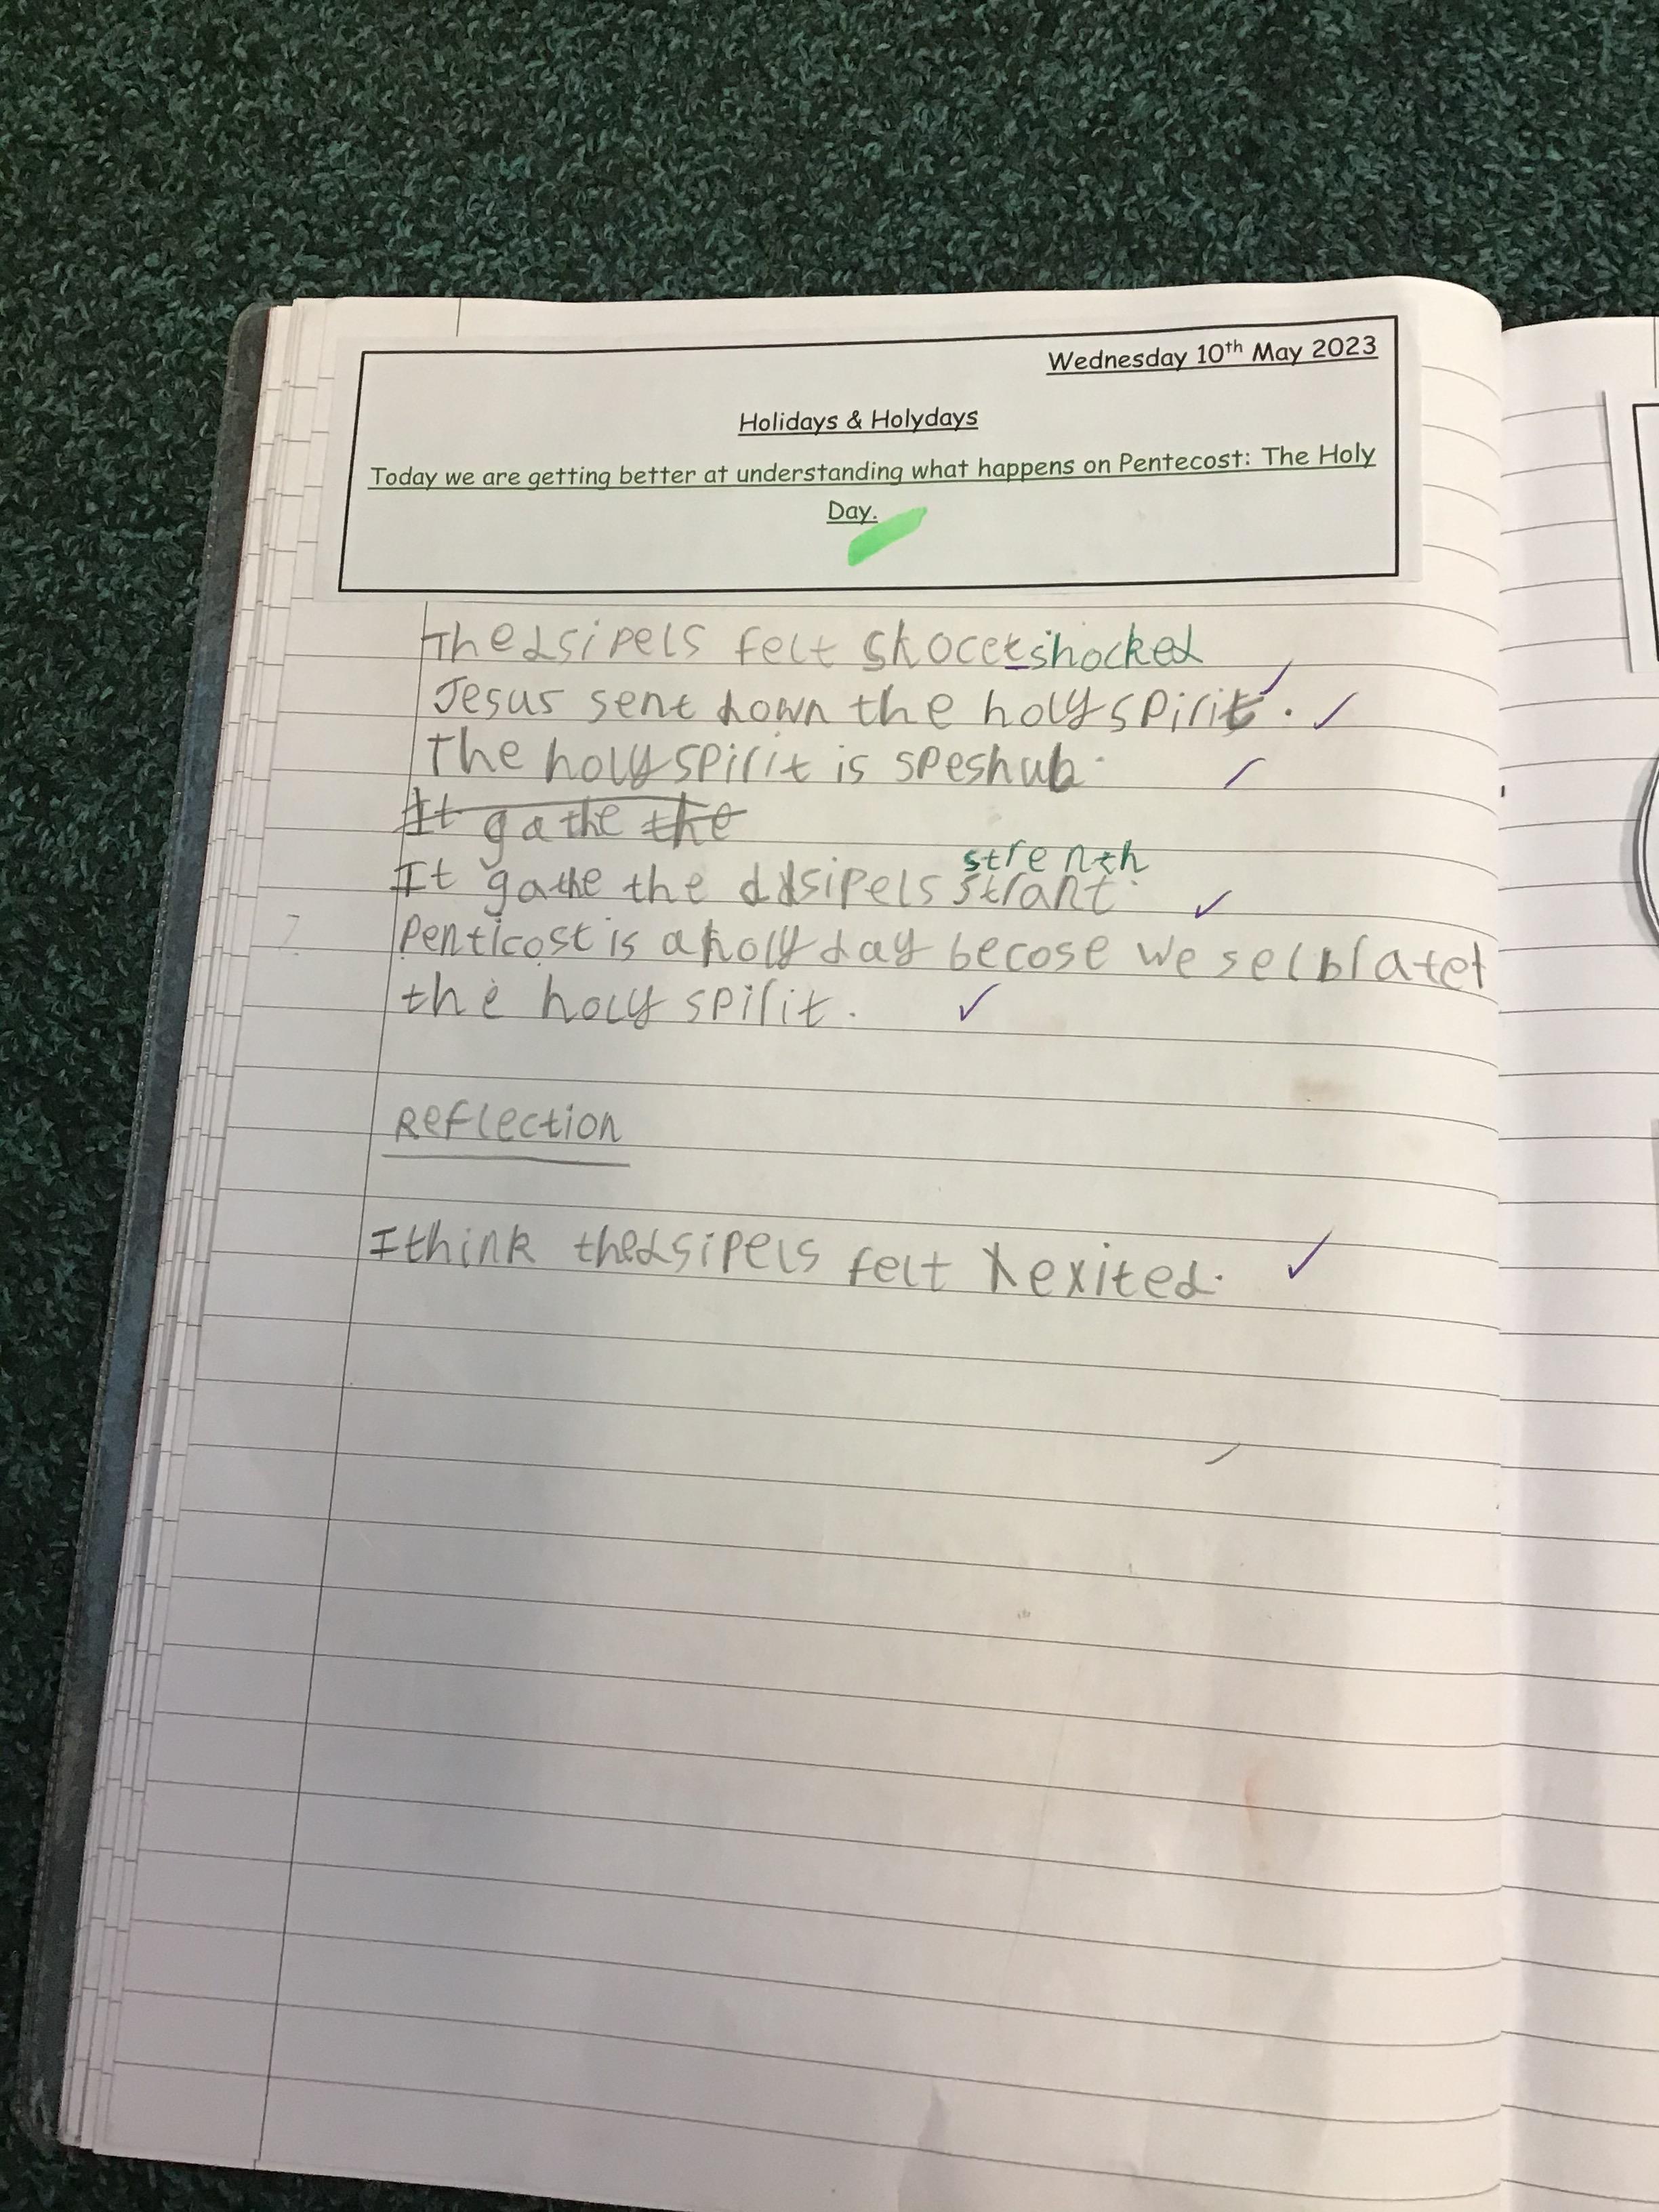 Wednesday 10th May 2023
Holidays & Holydays
Today we are getting better at understanding what happens on Pentecost: The Holy
Day.
The dsipels felt skocet shocked
Jesus sent down the holy spirit.
The holy spirit is speshul.
It gathe the
strenth
It gathe the ddsipels strant.
Penticost is a holy day becose we selbratet
the holy spirit.
Reflection
I think the dsipels felt exited.